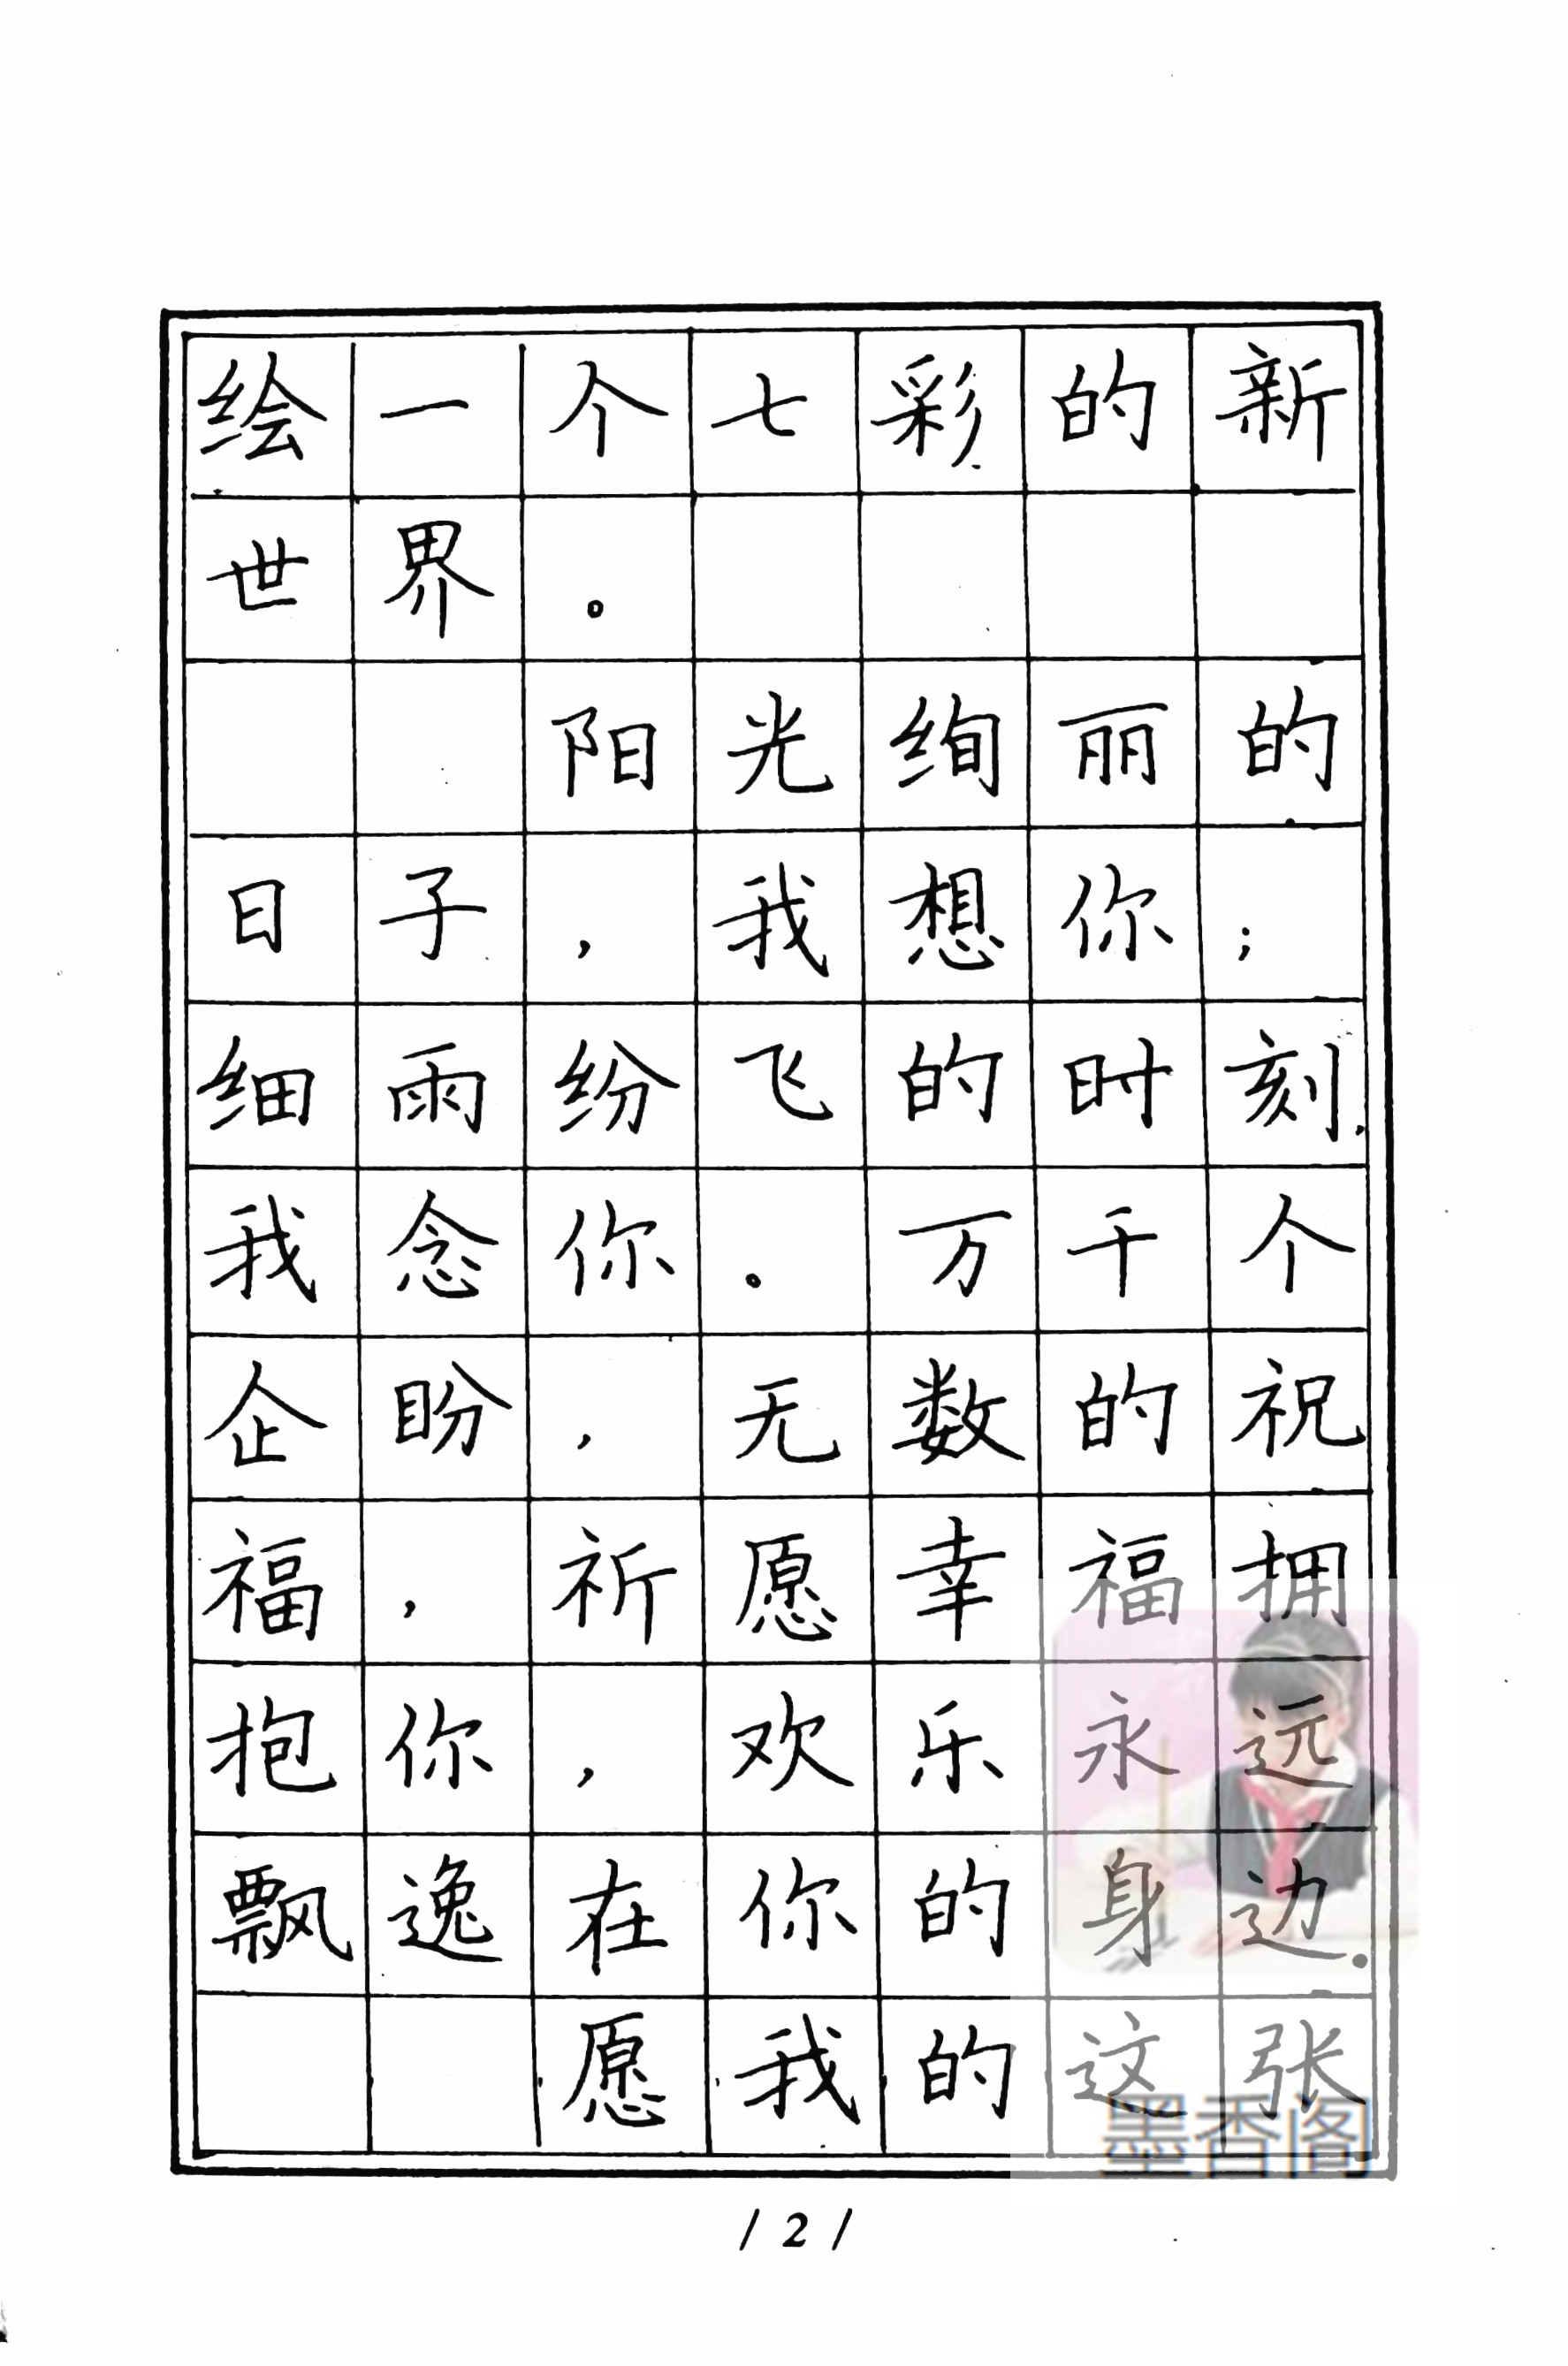 绘一个七彩的新
世界。
阳光绚丽的
日子，我想你；
细雨纷飞的时刻，
我念你。万千个
企盼，无数的祝
福，祈愿幸福拥
抱你，欢乐永远
飘逸在你的身边.
愿我的这张
墨香阁
/2/